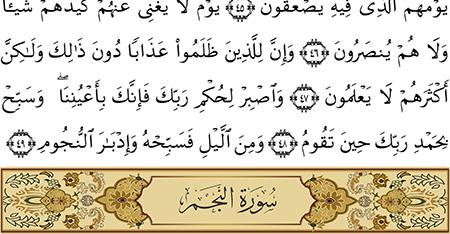 يَوْمَهُمُ ٱلَّذِى فِيهِ يُصْعَقُونَ ﴿٤٥﴾ يَوْمَ لَا يُغْنِى عَنْهُمْ كَيْدُهُمْ شَيْـًٔا
وَلَا هُمْ يُنصَرُونَ ﴿٤٦﴾ وَإِنَّ لِلَّذِينَ ظَلَمُوا۟ عَذَابًا دُونَ ذَٰلِكَ وَلَـٰكِنَّ
أَكْثَرَهُمْ لَا يَعْلَمُونَ ﴿٤٧﴾ وَٱصْبِرْ لِحُكْمِ رَبِّكَ فَإِنَّكَ بِأَعْيُنِنَا ۖ وَسَبِّحْ
بِحَمْدِ رَبِّكَ حِينَ تَقُومُ ﴿٤٨﴾ وَمِنَ ٱلَّيْلِ فَسَبِّحْهُ وَإِدْبَـٰرَ ٱلنُّجُومِ ﴿٤٩﴾
سُورَةُ النَّجْمِ